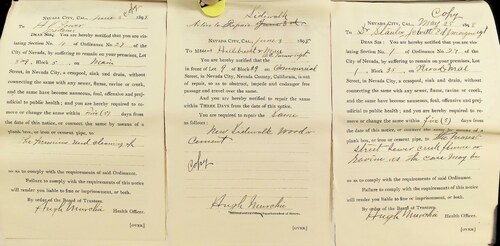 Copy
NEVADA CITY, CAL. June 5 1895
To
DEAR SIR: You are hereby notified that you are vio-
lating Section of Ordinance No. 22 of the
City of Nevada, by suffering to remain on your premises, Lot
Block 8 on Main
Street, in Nevada City, a cesspool, sink and drain, without
connecting the same with any sewer, flume, ravine or creek,
and the same have become nauseous, foul, offensive and prej-
udicial to public health; and you are hereby required to re-
move or change the same within five (5) days
from the date of this notice, or connect the same by means of a
plank box, or iron or cement pipe, to
so as to comply with the requirements of said Ordinance.
Failure to comply with the requirements of this notice
will render you liable to fine or imprisonment, or both.
By order of the Board of Trustees.
Hugh Murchie
Health Officer.
[OVER]
Sidwalk
Notice to Repair
NEVADA CITY, CAL., June 3 1895
To MESSRS.
You are hereby notified that the
in front of Lot Block on Commercial
Street, in Nevada City, Nevada County, California, is out
of repair, so as to obstruct, impede and endanger free
passage and travel over the same.
And you are hereby notified to repair the same
within THREE DAYS from the date of this notice.
You are required to repair the Same
as follows:
New Sidwalk Wood or
Cement
Copy
Hugh Murchie
[OVER]
Copy
NEVADA CITY, CAL. May 25 1895
To
DEAR SIR: You are hereby notified that you are vio-
lating Section of Ordinance No. 22 of the
City of Nevada, by suffering to remain on your premises, Lot
1, Block 30 on
Street, in Nevada City, a cesspool, sink and drain, without
connecting the same with any sewer, flume, ravine or creek,
and the same have become nauseous, foul, offensive and prej-
udicial to public health; and you are hereby required to re-
move or change the same within five (5) days
from the date of this notice, or connect the same by means of a
plank box, or iron or cement pipe, to the
Street Sewer creek flume or
Ravine as the case may be
so as to comply with the requirements of said Ordinance.
Failure to comply with the requirements of this notice
will render you liable to fine or imprisonment, or both.
By order of the Board of Trustees.
Hugh Murchie
Health Officer.
[OVER]